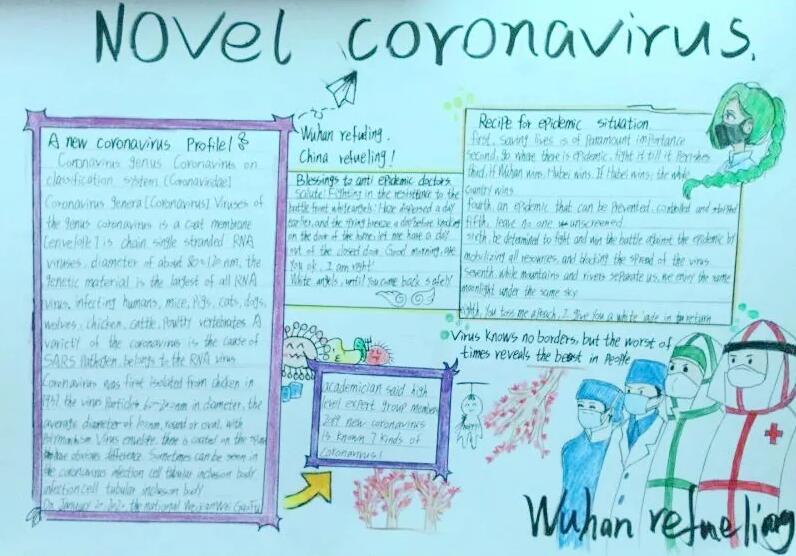 Novel coronavirus.
A new coronavirus Profile!
Coronavirus genus Coronavirus on
classification system (Coronaviridae)
Coronavirus genera (Coronavirus) Viruses of
the genus coronavirus is a coat membrane
(envelope) is chain single stranded RNA
viruses, diameter of about 80~120 nm, the
genetic material is the largest of all RNA
virus, infecting humans, mice, pigs, cats, dogs,
wolves, chicken, cattle, poultry vertebrates. A
variety of the coronavirus is the cause of
SARS Pathogen, belongs to the RNA virus
Coronavirus was first isolated from chicken in
1937. the virus particles 60-200nm in diameter, the
average diameter of 100nm, round or oval, with
Virus envelope, there is coated on the
have obvious difference. Sometimes can be seen in
the coronavirus infection cell tubular inclusion body
infection cell tubular inclusion body
On January 2020 the national
Wuhan refuling.
China refueling!
Blessings to anti epidemic doctors
salute! Fighting in the resistance to the
battle front white angels! Haze dispersed a day
earlier, and the spring breeze a day before knocking
on the door of the home; let me have a day
out of the closed door. Good morning, are
you ok, I am right!
White angels, until you come back safely
Recipe for epidemic situation
first, saving lives is of Paramount importance
second, Go where there is epidemic, fight it till it Perishes
third, if Wuhan wins, Hubei wins. If Hebei wins, the whole
country wins
fourth, an epidemic that can be prevented, controlled and
fifth, leave no one unscreened
sixth, be determined to fight and win the battle against the epidemic by
mobilizing all resources, and blocking the spread of the virus
seventh, while mountains and rivers separate us, we enjoy the same
moonlight under the same sky
eight, You toss me a peach, I give you a white jade in return
Virus knows no borders, but the worst of
times reveals the beast in People
academician said high
level expert group members
2019 new coronavirus
is known 7 kinds of
coronavirus!
Wuhan refueling